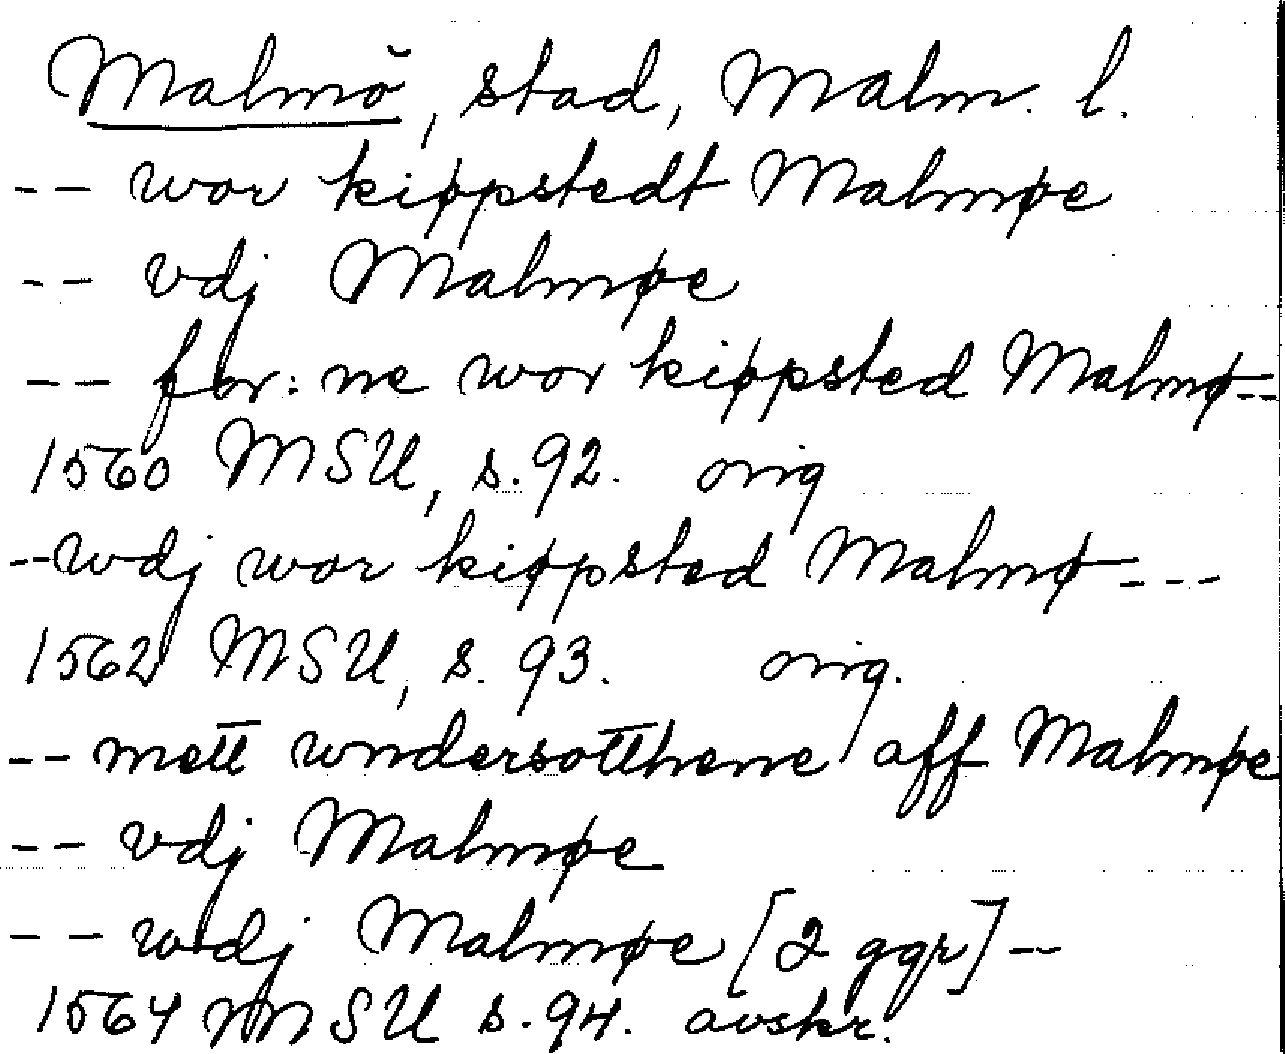 Malmö, stad, Malm. l.
-- wor kiøpstedt Malmøe
-- vdj Malmøe
-- for:ne wor kiøpsted Malmø--
1560 MSU, s.92. orig
--wdj wor kiøpsted Malmø---
1562 MSU, s. 93. orig.
-- mett wndersotthene aff Malmøe
-- vdj Malmøe
-- wdj Malmøe [2 ggr]--
1564 MSU s.94. avskr.